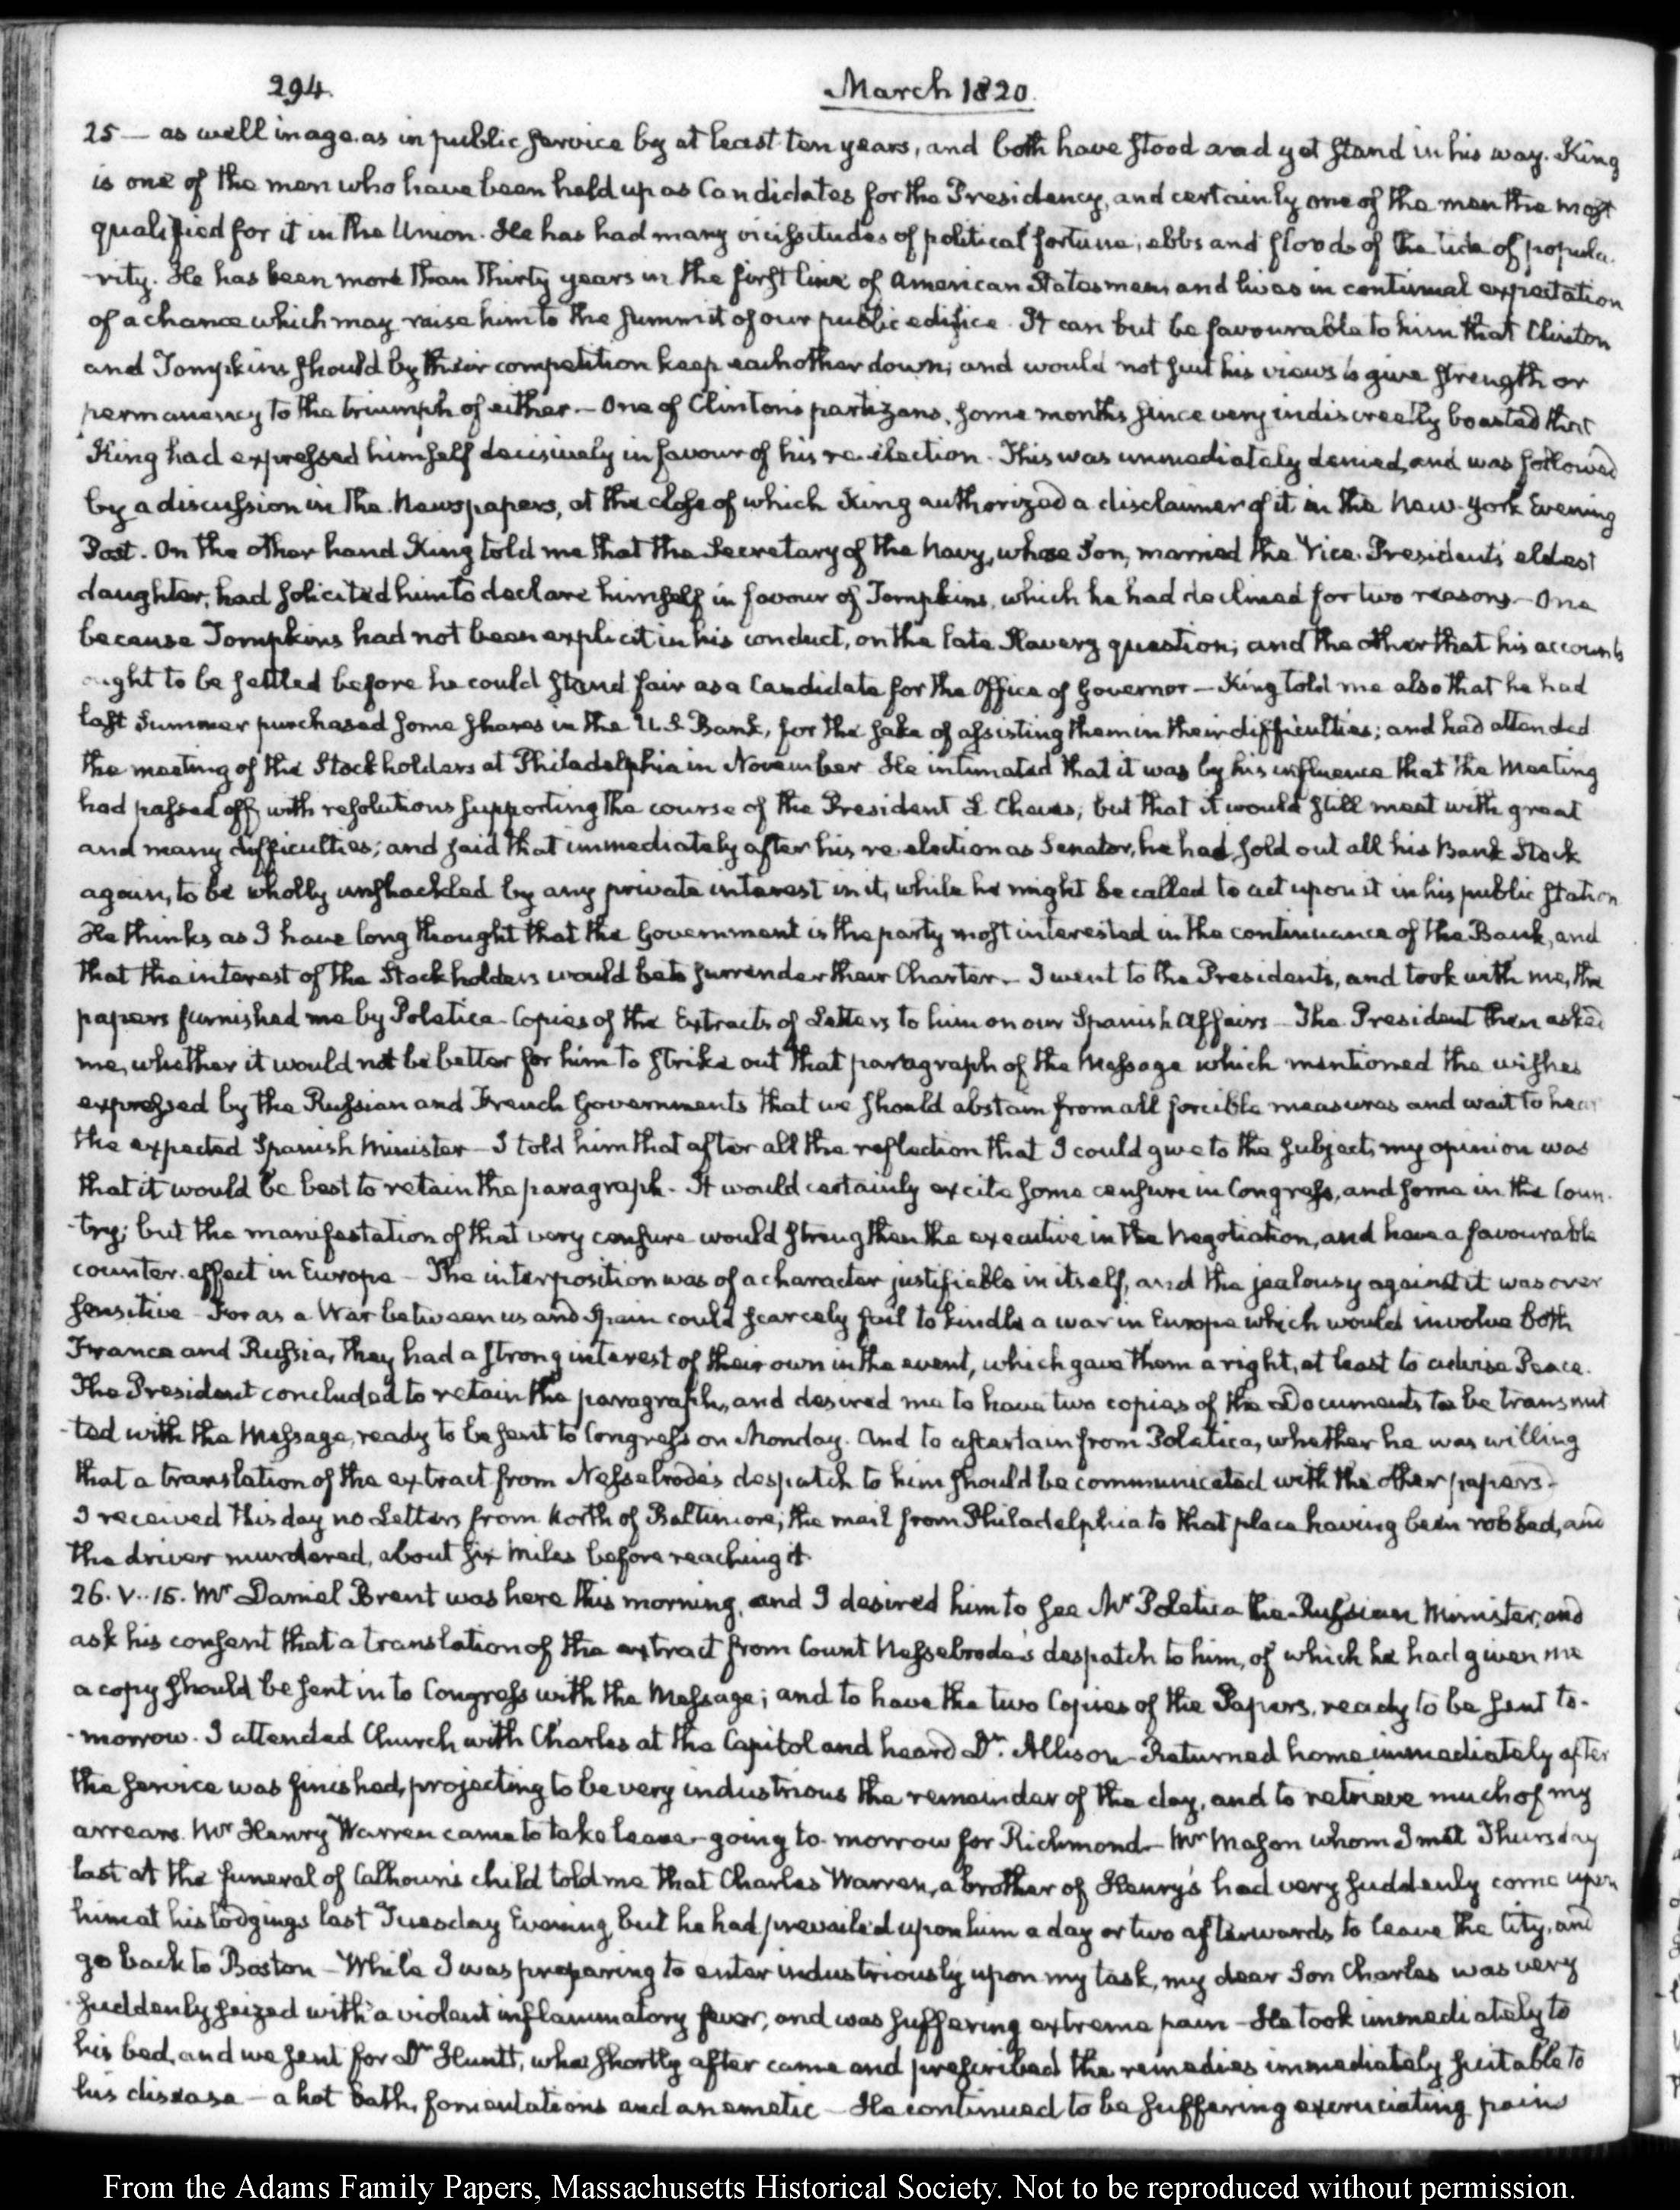 294.
March 1820.
25 — as well in age as in public service by at least ten years, and both have stood and yet stand in his way. King
is one of the men who have been held up as Candidates for the Presidency, and certainly one of the men the most
qualified for it in the Union. He has had many vicissitudes of political fortune; ebbs and floods of the tide of popula-
-rity. He has been more than thirty years in the first line of American Statesmen and lives in continual expectation
of a chance which may raise him to the summit of our public edifice. It can but be favourable to him that Clinton
and Tompkins should by their competition keep each other down; and would not suit his views to give strength or
permanency to the triumph of either. — One of Clinton's partizans, some months since very indiscreetly boasted that
King had expressed himself decisively in favour of his re-election. This was immediately denied, and was followed
by a discussion in the Newspapers, at the close of which King authorized a disclaimer of it in the New-York Evening
Post. On the other hand King told me that the Secretary of the Navy, whose Son, married the Vice-President's eldest
daughter, had solicited him to declare himself in favour of Tompkins, which he had declined for two reasons — One
because Tompkins had not been explicit in his conduct, on the late Slavery question; and the other that his accounts
ought to be settled before he could stand fair as a Candidate for the Office of Governor — King told me also that he had
last Summer purchased some shares in the U.S. Bank, for the sake of assisting them in their difficulties; and had attended
the meeting of the Stockholders at Philadelphia in November. He intimated that it was by his influence that the Meeting
had passed off, with resolutions supporting the course of the President L. Cheves; but that it would still meet with great
and many difficulties; and said that immediately after his re-election as Senator, he had sold out all his Bank Stock
again, to be wholly unshackled by any private interest in it, while he might be called to act upon it in his public station
He thinks as I have long thought that the Government is the party most interested in the continuance of the Bank, and
that the interest of the Stockholders would be to surrender their Charter. — I went to the President's, and took with me, the
papers furnished me by Poletica — Copies of the Extracts of Letters to him on our Spanish Affairs — The President then asked
me, whether it would not be better for him to strike out that paragraph of the Message which mentioned the wishes
expressed by the Russian and French Governments that we should abstain from all forcible measures and wait to hear
the expected Spanish Minister — I told him that after all the reflection that I could give to the subject, my opinion was
that it would be best to retain the paragraph. It would certainly excite some censure in Congress, and some in the Coun-
-try; but the manifestation of that very censure would strengthen the executive in the Negotiation, and have a favourable
counter-effect in Europe — The interposition was of a character justifiable in itself, and the jealousy against it was over
sensitive — For as a War between us and Spain could scarcely fail to kindle a war in Europe which would involve both
France and Russia, they had a strong interest of their own in the event, which gave them a right, at least to advise Peace.
The President concluded to retain the paragraph, and desired me to have two copies of the Documents to be transmit
-ted with the Message, ready to be sent to Congress on Monday. And to ascertain from Poletica, whether he was willing
that a translation of the extract from Nesselrode's despatch to him should be communicated with the other papers —
I received this day no Letters from North of Baltimore; the mail from Philadelphia to that place having been robbed, and
the driver murdered, about six miles before reaching it.
26. V.. 15. Mr Daniel Brent was here this morning, and I desired him to see Mr Poletica the Russian Minister, and
ask his consent that a translation of the extract from Count Nesselrode's despatch to him, of which he had given me
a copy should be sent in to Congress with the Message; and to have the two Copies of the Papers, ready to be sent to-
-morrow. I attended Church with Charles at the Capitol and heard Dr. Allison — Returned home immediately after
the service was finished, projecting to be very industrious the remainder of the day, and to retrieve much of my
arrears. Mr Henry Warren came to take leave — going to-morrow for Richmond — Mr Mason whom I met Thursday
last at the funeral of Calhoun's child told me that Charles Warren, a brother of Henry's had very suddenly come upon
him at his lodgings last Tuesday Evening, but he had prevailed upon him a day or two afterwards to leave the City, and
go back to Boston — While I was preparing to enter industriously upon my task, my dear Son Charles was very
suddenly seized with a violent inflammatory fever, and was suffering extreme pain — He took immediately to
his bed, and we sent for Dr Huntt, who shortly after came and prescribed the remedies immediately suitable to
his disease — a hot bath, fomentations and an emetic — He continued to be suffering excruciating pain
From the Adams Family Papers, Massachusetts Historical Society. Not to be reproduced without permission.